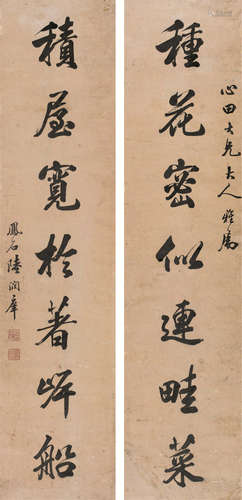 心田大兄大人雅属
種花密似連畦菜
積屋寬於著岸船
鳳石陸潤庠